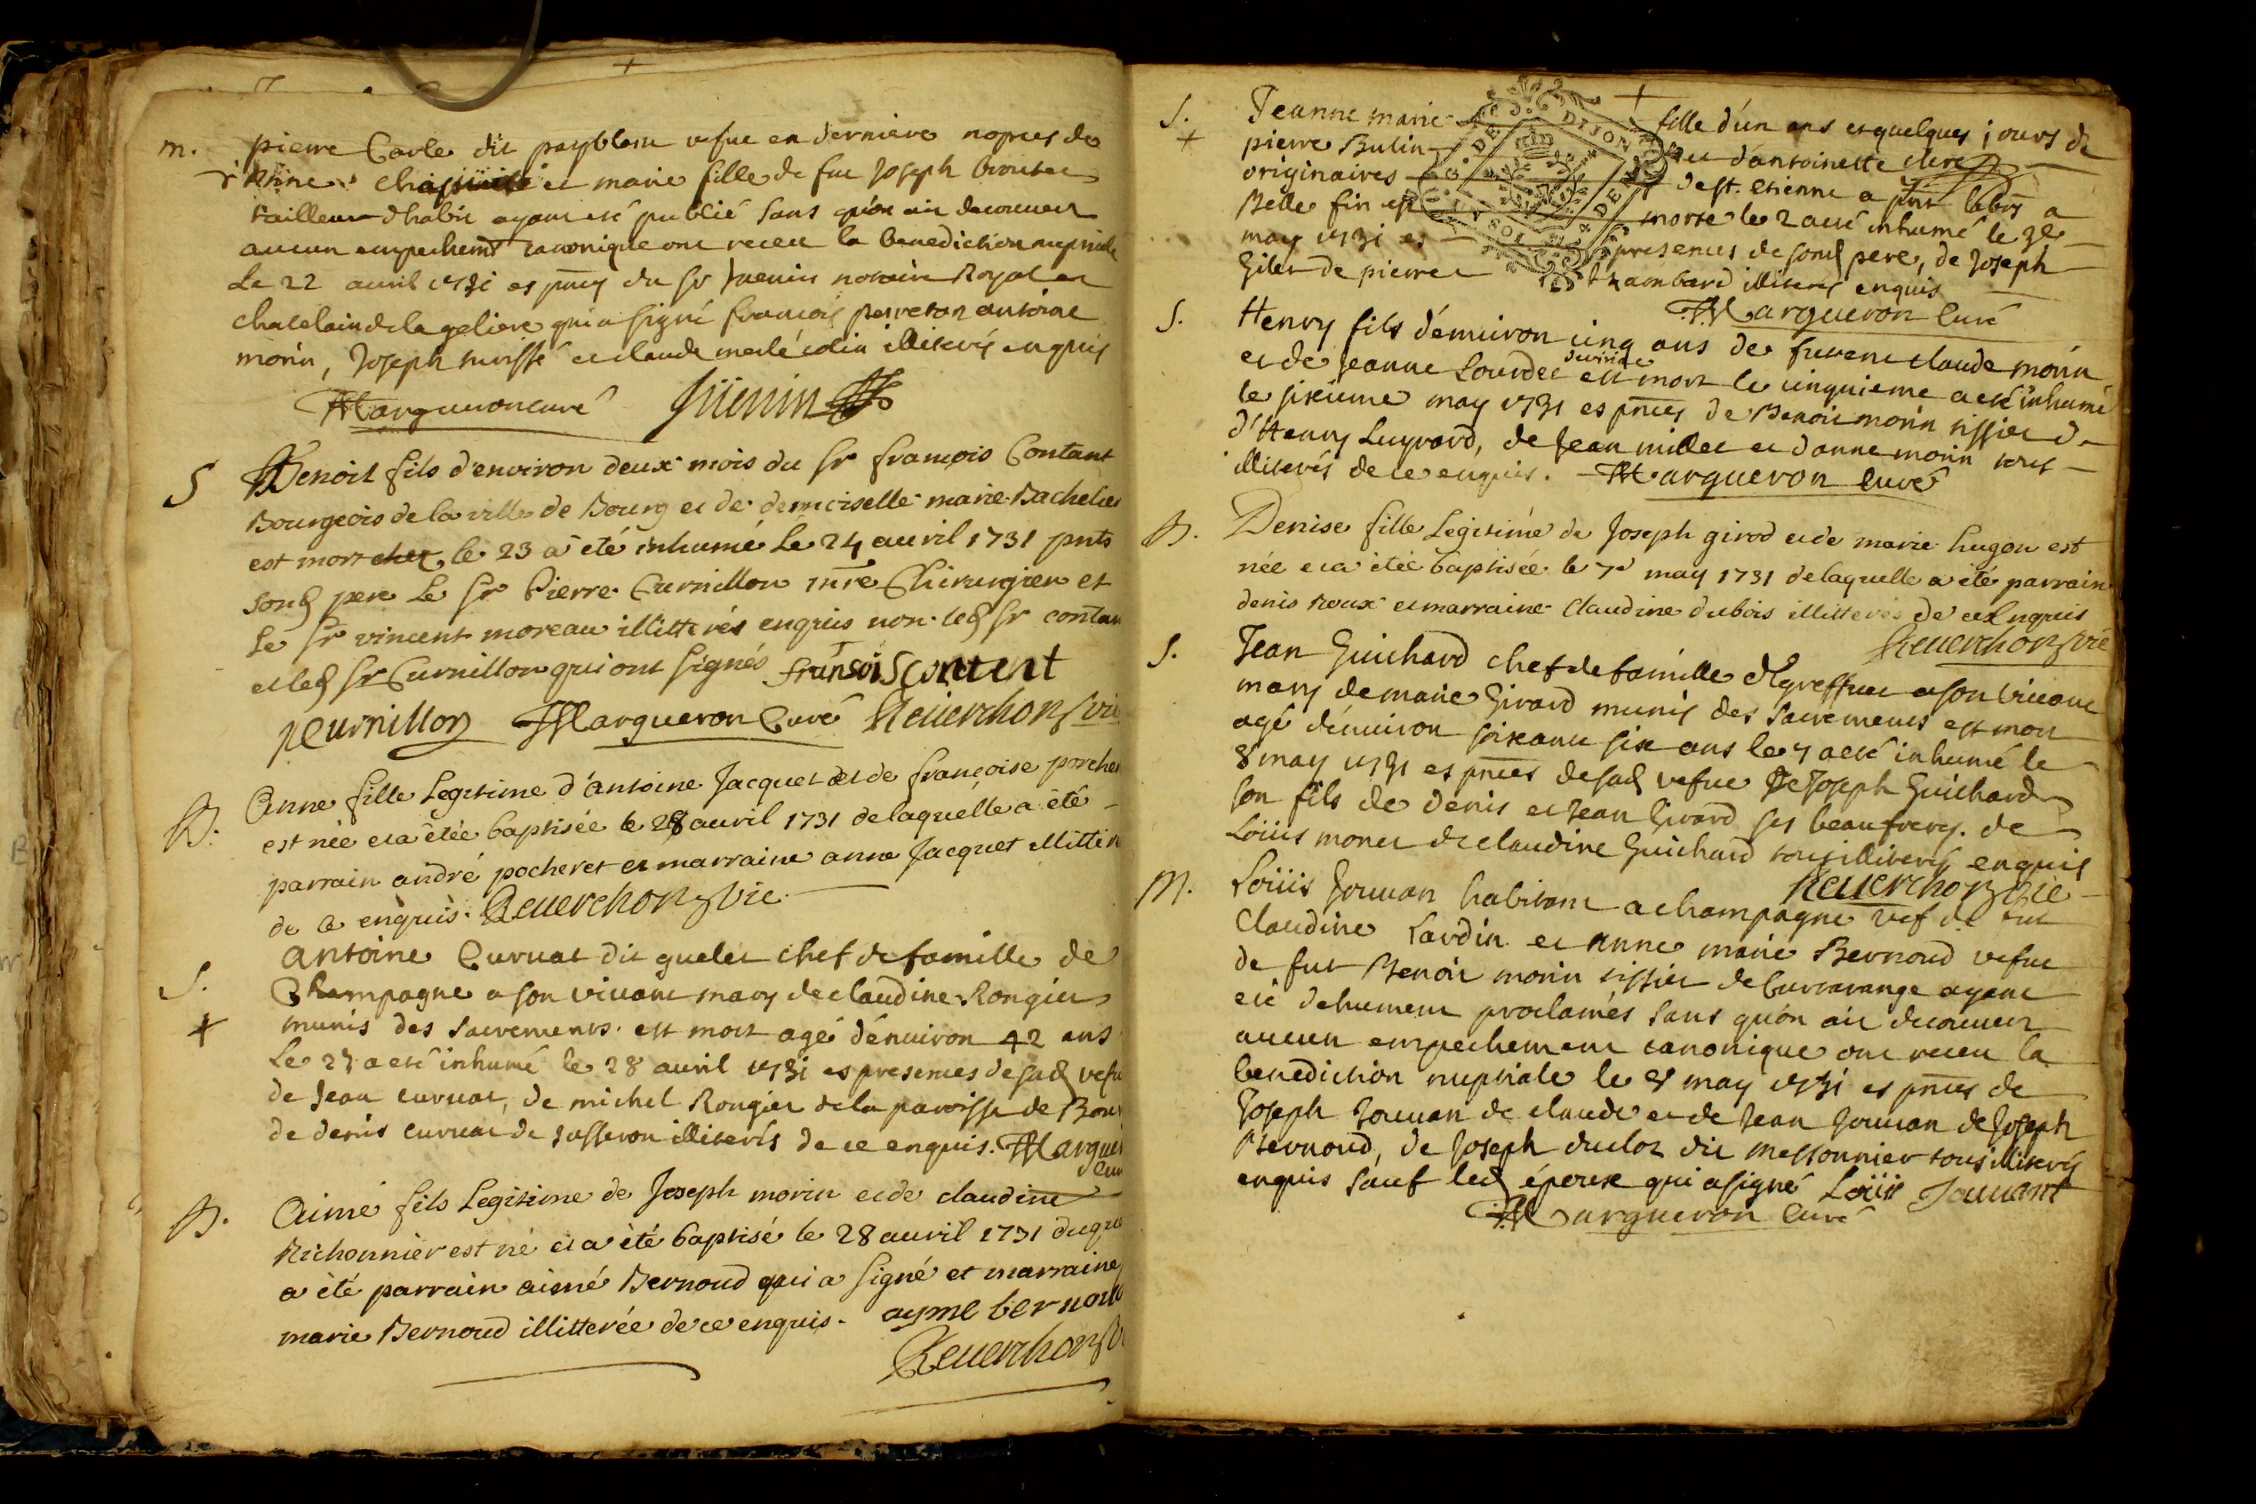 m. pierre Carle dit payblanc vefue en dernieres nopces de
Anne et marie fille de feu Joseph
tailleur dhabit ayant eté publié sans qu'on ait decouvert
aucun empechemt canonique ont receu la benediction nuptiale
Le 22 auril 1731 es pnces du sr Juenin notaire Royal et
chatelain de la geliere qui a signé françois perreton antoine
morin, Joseph et claude illiterés enquis
Margueron curé Jüenin
S Benoit fils d'environ deux mois du Sr françois Contant
Bourgeois de la ville de Bourg et de demoiselle marie Bachelier
est mort chez le 23 a été inhumé Le 24 auril 1731 pnts
sond pere Le Sr Pierre Curnillon mre Chirurgien et
Le Sr vincent moreau illitterés enquis non led Sr contan
et led Sr Curnillon qui ont signés fransois content
pCurnillon Margueron Curé Reuerchon vic
B. Anne fille Legitime d'antoine Jacquet et de françoise porcher
est née et a étée baptisée le 28 auril 1731 de laquelle a été
parrain andré pocheret et marraine anne Jacquet illitte
de ce enquis. Reuerchon vic
S. antoine Curuat dit quelet chef de famille de
+ Champagne a son viuant mary de claudine Rongier
munis des sacrements est mort agé d'enuiron 42 ans
Le 27 a eté inhumé le 28 auril 1731 es presences de sad vefu
de Jean curuat, de michel Rongier de la paroisse de Bou
de denis curuat de illiterés de ce enquis. Margue
Cur
B. Aimé fils Legitime de Joseph morin et de claudine
Richonnier est né et a été baptisé le 28 auril 1731 duque
a été parrain aimé Bernoud qui a signé et marraine
marie Bernoud illitterée de ce enquis. ayme bernou
Reuerchon
S. Jeanne marie fille d'un ans et quelques jours de
+ pierre Butin et d'antoinette clere
originaires de st. etienne a
Belle fin est morte le 2 a eté inhumé le 3e
may 1731 es presences de sond pere, de Joseph
Gilet de pierre illiterés enquis
GEN DE DIJON DE SOLS
Margueron Curé
S. Henry fils d'enuiron cinq ans de furent claude morin
et de Jeanne Lourdet est mort le cinquieme a eté inhumé
le sixieme may 1731 es pnces de Benoit morin tissier d
d'Henry Luyrard, de Jean millet et d'anne morin tous
illiterés de ce enquis. Margueron Curé
B. Denise fille Legitime de Joseph girod et de marie hugon est
née et a étée baptisée le 7e may 1731 de laquelle a été parrain
denis roux et marraine Claudine dubois illitterés de ce Enquis
Reuerchon vic
S. Jean Guichard chef de famille a son viuant
mary de marie Girard munis des sacrements est mort
agé d'enuiron soixante six ans le 7 a eté inhumé le
8 may 1731 es pnces de sad vefue De Joseph Guichard
son fils de denis et Jean Girard ses beaufreres. de
Loüis et de claudine Guichard tous illiterés enquis
Reuerchon vic
M. Loüis Jouuan habitant a champagne vef de fut
Claudine Lardin et Anne marie Bernoud vefue
de fut Benoit morin tissier de Curtarange ayant
eté duhument proclamés sans qu'on ait decouuert
aucun empechement canonique ont receu la
benediction nuptiale le 8 may 1731 es pnces de
Joseph Jouuan de claude et de Jean Jouuan de Joseph
Bernoud, de Joseph duclos dit messonnier tous illiterés
enquis sauf led époux qui a signé Loüis Jouuant
Margueron Curé